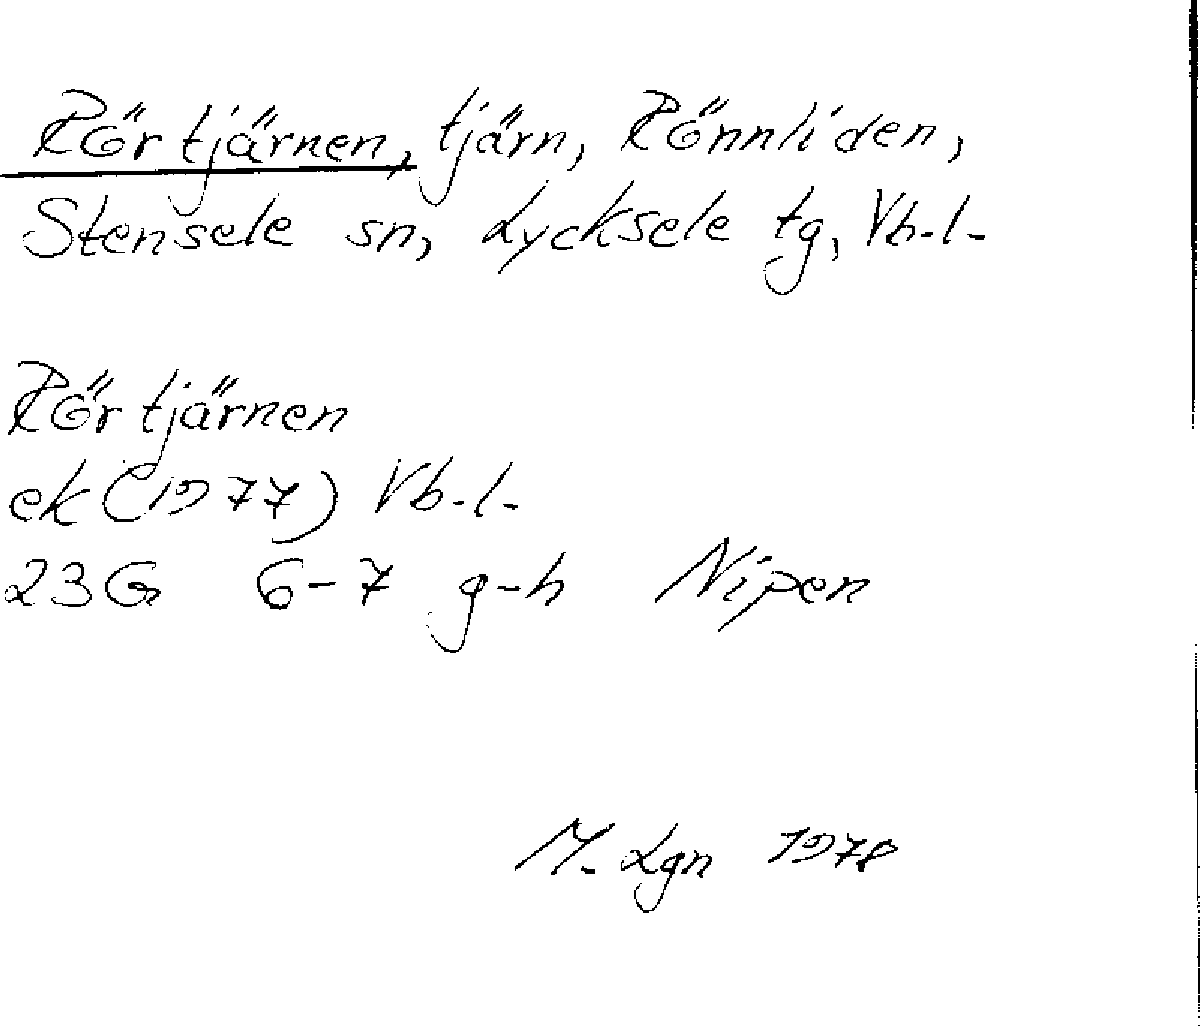 Rörtjärnen, tjärn, Rönnliden,
Stensele sn, Lycksele tg, Vb.l.
Rörtjärnen
ek (1977) Vb.l.
23G 6-7 g-h Nipen
M. Lgn 1978